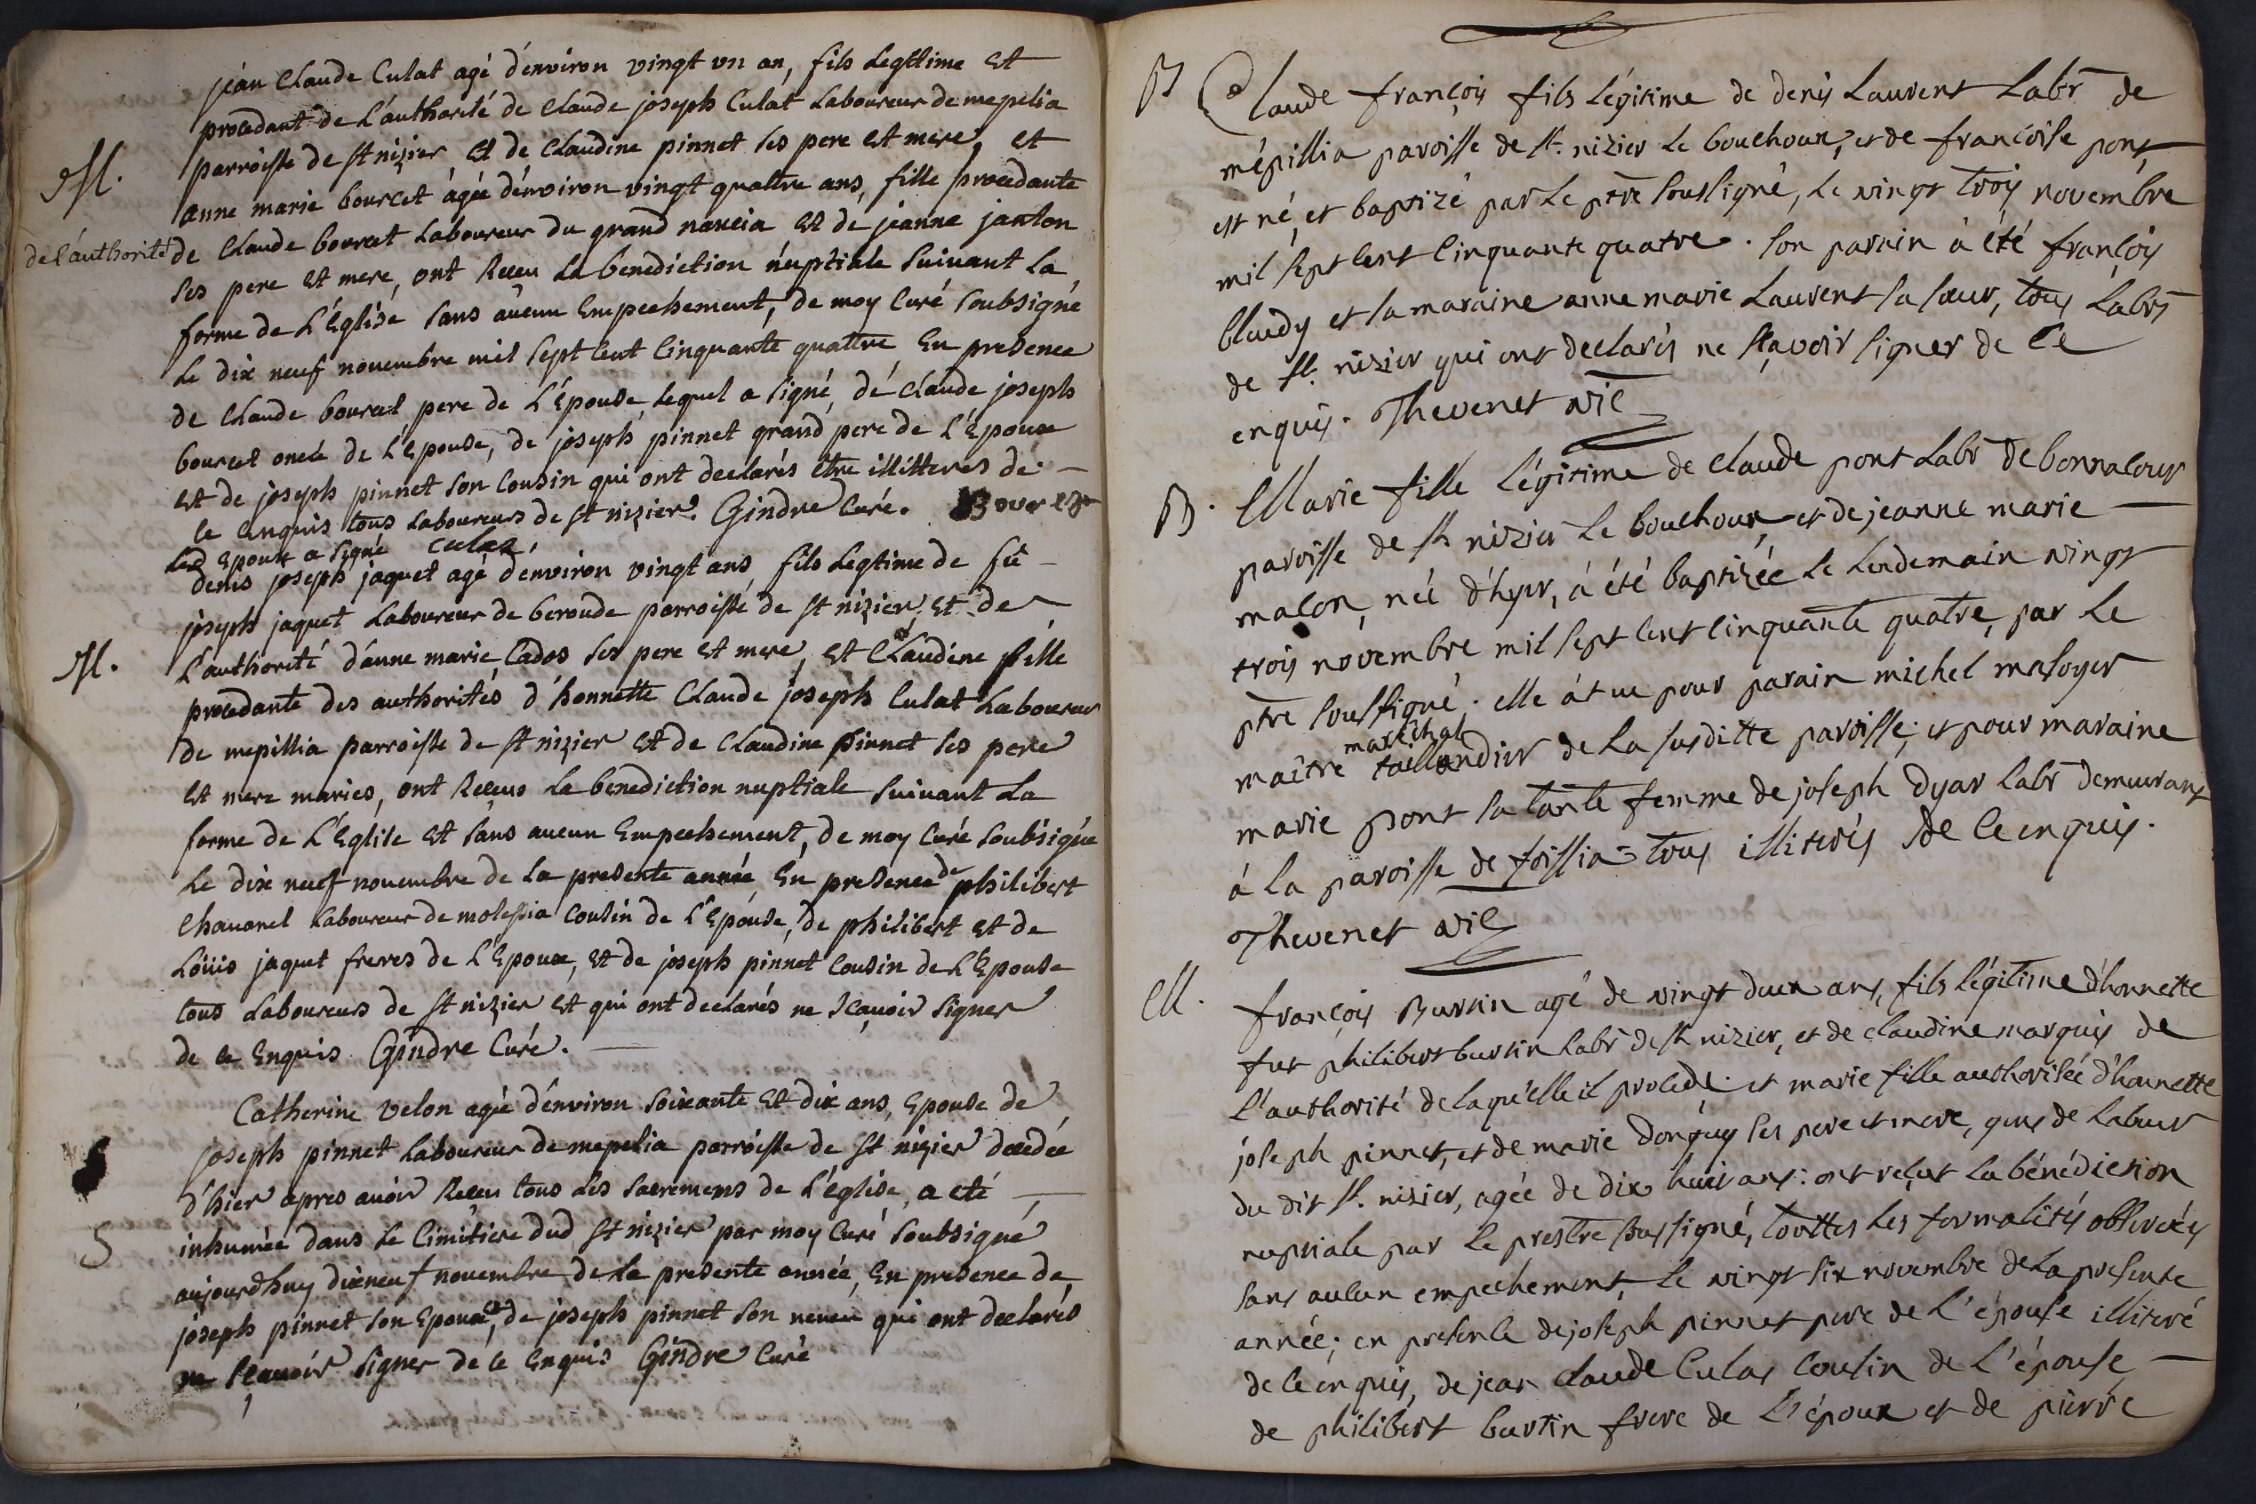 jéan Claude Culat agé d'environ vingt un an, fils Legttime et
procedant de L'authorité de Claude joseph Culat Laboureur de mepelia
M.
parroisse de st nizier et de Claudine pinnet ses pere et mere, et
anne marie bourcet âgée d'environ vingt quattre ans, fille procedante
de l'authorité
de Claude bourcet Laboureur du grand nancia et de jeanne janton
ses pere et mere, ont Receu La benediction nuptiale suivant La
forme de L'Eglise sans aucun Empechement, de moy Curé soubsigné
Le dix neuf novembre mil sept Cent Cinquante quattre En presence
de Claude bourcet pere de L'Epouse Lequel a signé, de Claude joseph
bourcet oncle de L'Epouse, de joseph pinnet grand pere de L'Epoux
et de joseph pinnet son Cousin qui ont declarés être illitteres de
ce Enquis tous Laboureurs de st nizier. Gindre Curé. Bourcet
Led Epoux a signé Culat
denis joseph jaquet agé d'environ vingt ans fils Legtime de fû
joseph jaquet Laboureur de beroude parroisse de st nizier, et de
M.
L'authorité d'anne marie Cados ses pere et mere, et Claudine fille
procedante des authorités d'honnette Claude joseph Culat Laboureur
de mepillia parroisse de st nizier et de Claudine pinnet ses pere
et mere mariés, ont Reçeus La benediction nuptiale suivant La
forme de L'Eglise et sans aucun Empechement, de moy Curé soubsigné
Le dix neuf novembre de La presente année, En presence de philibert
Chavanel Laboureur de molessia Cousin de L'Epouse, de philibert et de
Loüis jaquet freres de L'Epoux, et de joseph pinnet Cousin de L'Epouse
tous Laboureurs de st nizier et qui ont declarés ne sçavoir signer
de ce Enquis Gindre Curé.
Catherine velon agée d'environ soixante et dix ans, Epouse de
joseph pinnet Laboureur de mepelia parroisse de st nizier decedée
d'hier apres avoir Receu tous Les sacremens de L'église, a eté
S
inhumée dans Le Cimitiere dud st nizier par moy Curé soubsigné
aujourdhuy dixneuf novembre de La presente année, En presence de
joseph pinnet son Epoux, et de joseph pinnet son neveu qui ont declarés
ne sçavoir signer de ce Enquis Gindre Curé
B
Claude françois fils légitime de denis Laurent Labr de
mépillia paroisse de st. nizier Le bouchoux, et de françoise pont
est né, et baptizé par Le ptre soussigné, Le vingt trois novembre
mil sept cent Cinquante quatre. son parain à été françois
Claudy et sa maraine anne marie Laurent sa sœur, tous Labrs
de st. nizier qui ont declarés ne sçavoir signer de Ce
enquis. Thevenet vic
B.
Marie fille Légitime de Claude pont Labr de bonnacour
paroisse de st nizier Le bouchoux, et de jeanne marie
maçon, née d'hyer, à été baptizée Le Lendemain vingt
trois novembre mil sept cent cinquante quatre, par Le
ptre soussigné. elle à eu pour parain michel masoyer
marêchal
maître taillandier de La susditte paroisse; et pour maraine
marie pont sa tante femme de joseph Dyar Labr demeurant
à la paroisse de foissia - tous illiterés de Ce enquis.
Thevenet vic
M.
françois Burtin agé de vingt deux ans, fils légitime d'honnette
fut philibert burtin Labr de st nizier, et de claudine marquis de
L'authorité de laquelle il procede. et marie fille authorisée d'honnette
joseph pinnet, et de marie donguy ses pere et mere, gens de Labeur
du dit st. nizier, agée de dix huit ans: ont reçut La bénédiction
nuptiale par Le prestre soussigné, touttes Les formalités observées
sans aucun empechement, Le vingt six novembre de La presente
année; en presence de joseph pinnet pere de L'épouse illiteré
de Ce enquis, de jean Claude Culas Cousin de L'épouse
de philibert burtin frere de L'époux et de pierre